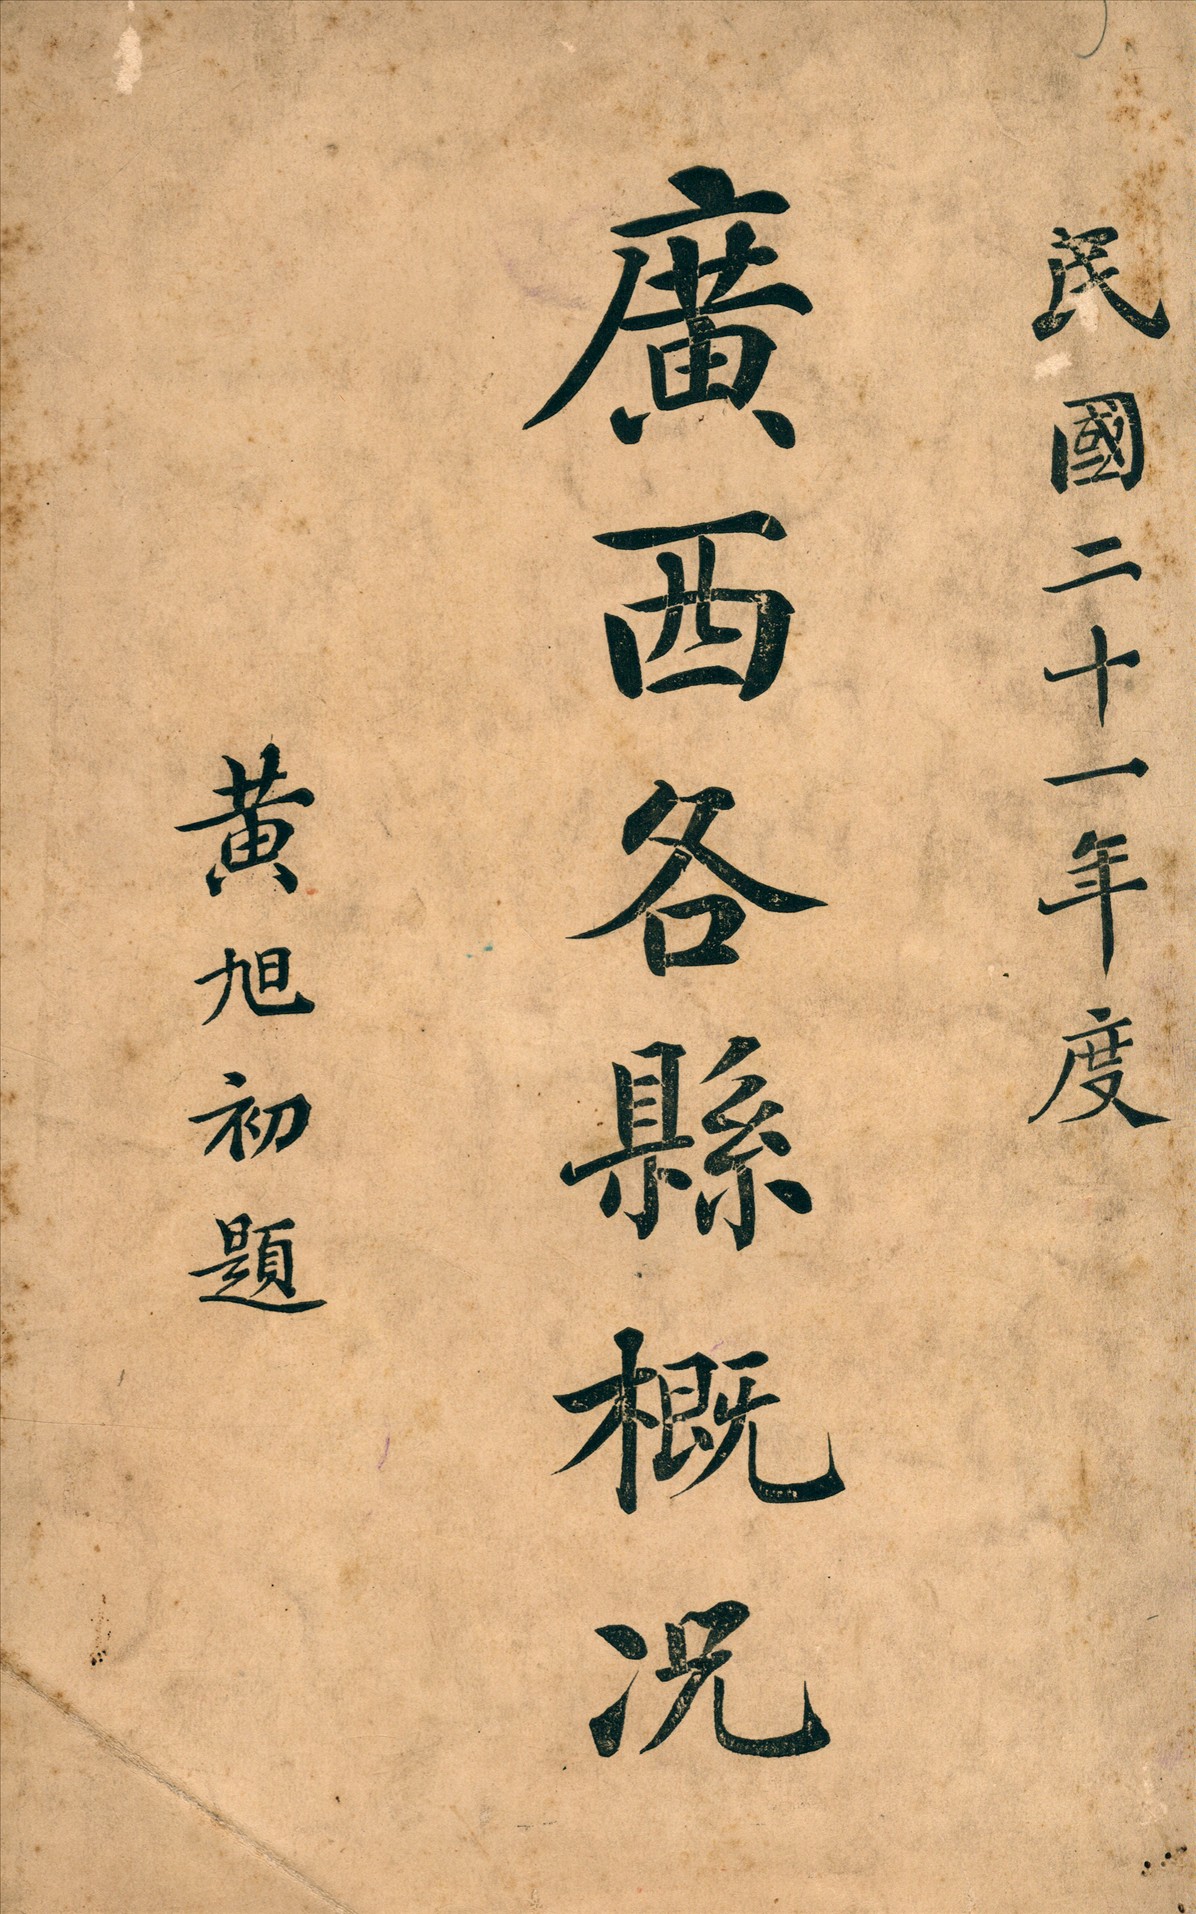 民國二十一年度
廣西各縣概況
黃旭初題